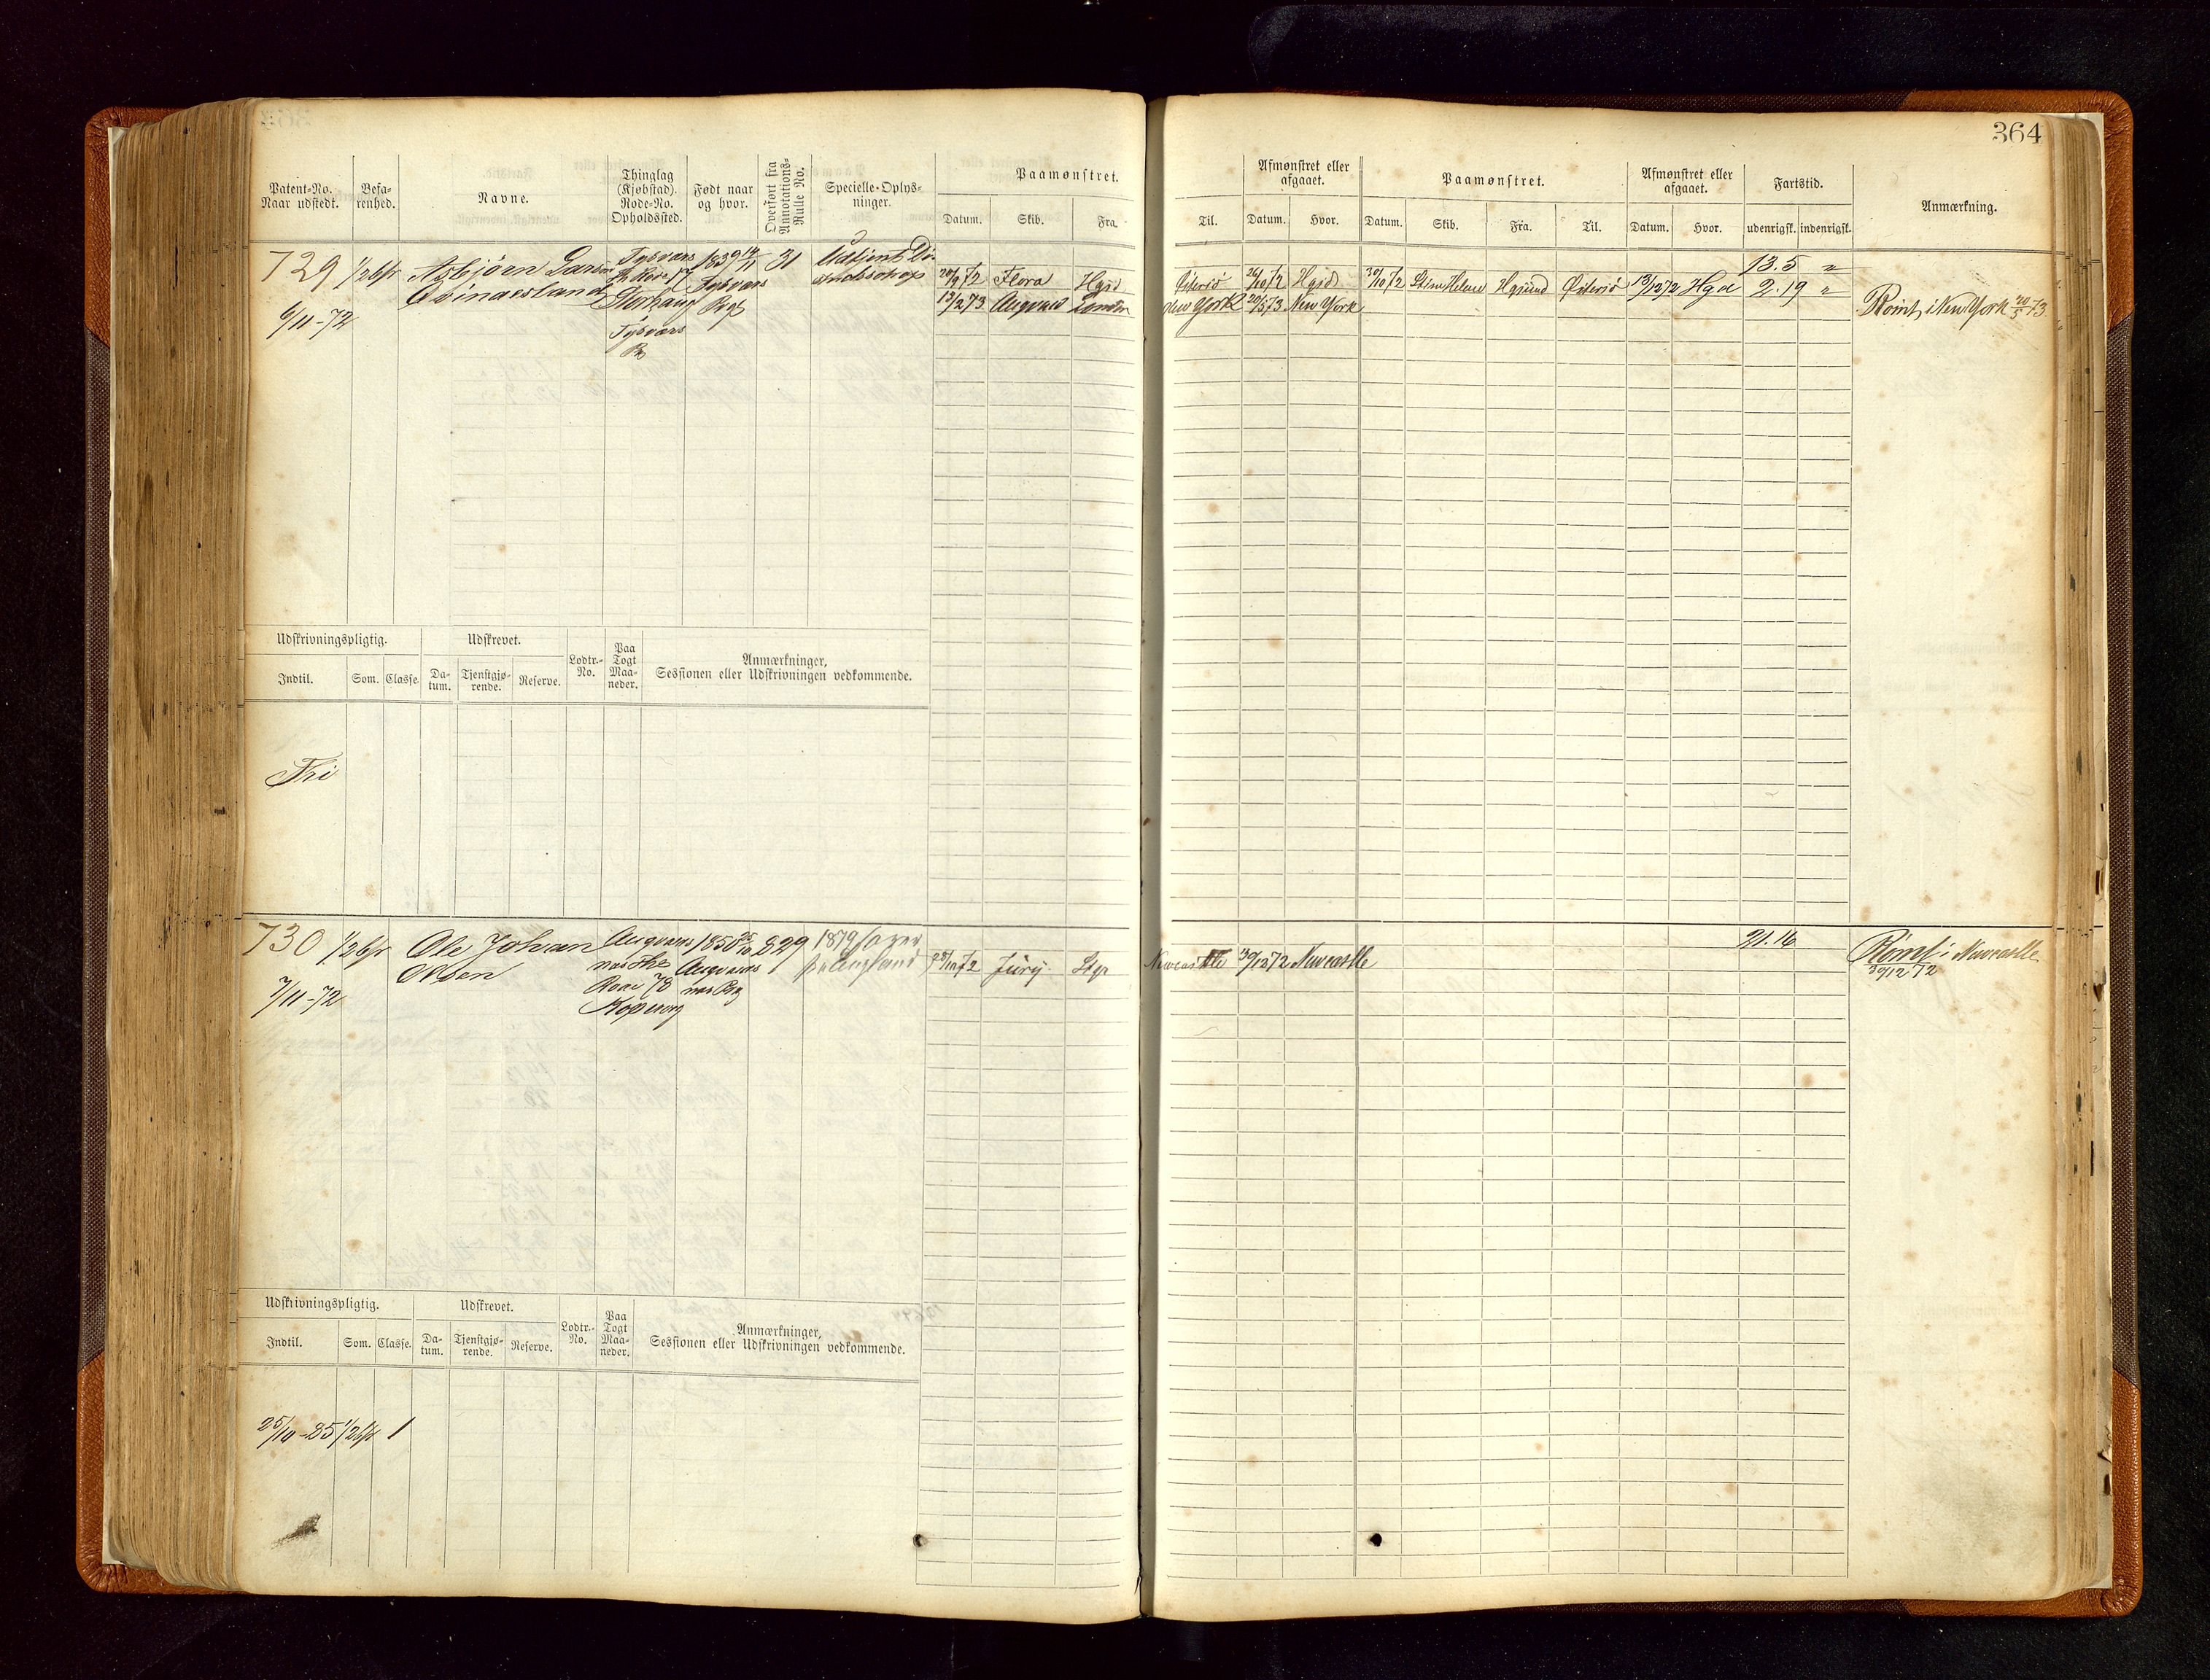 364
Patent-No. Naar udstedt.
Befarenhed.
Navne.
Thinglag (Kjøbstad). Rode-No. Opholdssted.
Født naar og hvor.
Overført fra Annotations-Rulle No.
Specielle-Oplysninger.
Paamønstret.
Datum. Skib. Fra.
Til.
Afmønstret eller afgaaet.
Datum. Hvor.
Paamønstret.
Datum. Skib. Fra. Til.
Afmønstret eller afgaaet.
Datum. Hvor.
Fartstid.
udenrigsk. indenrigsk.
Anmærkning.
729 1/2 bfr Asbjøen
Tysvær
1839 14/11
31
Udtjent
6/11-72
Tysvær
Tysvær
13.5 "
20/9 72 Flora Hgsd Østersö 26/10 72 Hgsd 30/10 72 Helene Hgsund Østersø 13/12 72 Hgd 2.19 "
13/2 73 London New York 20/5 73 New York
Römt i New York 20/5 73
Udskrivningspligtig.
Indtil. Som. Classe.
Udskrevet.
Datum. Tjenstgjørende. Reserve.
Lodtr.-No.
Paa Togt Maaneder.
Anmærkninger, Sessionen eller Udskrivningen vedkommende.
Fri
730 1/2 bfr Ole Johan
Olsen
7/11-72
1850 25/10
829
Kopervig
21.16
72 Stgr Newcastle 30/12 72 Newcastle
Römt i Newcastle
30/12 72
Udskrivningspligtig.
Indtil. Som. Classe.
Udskrevet.
Datum. Tjenstgjørende. Reserve.
Lodtr.-No.
Paa Togt Maaneder.
Anmærkninger, Sessionen eller Udskrivningen vedkommende.
25/10-85 1/2 bfr 1